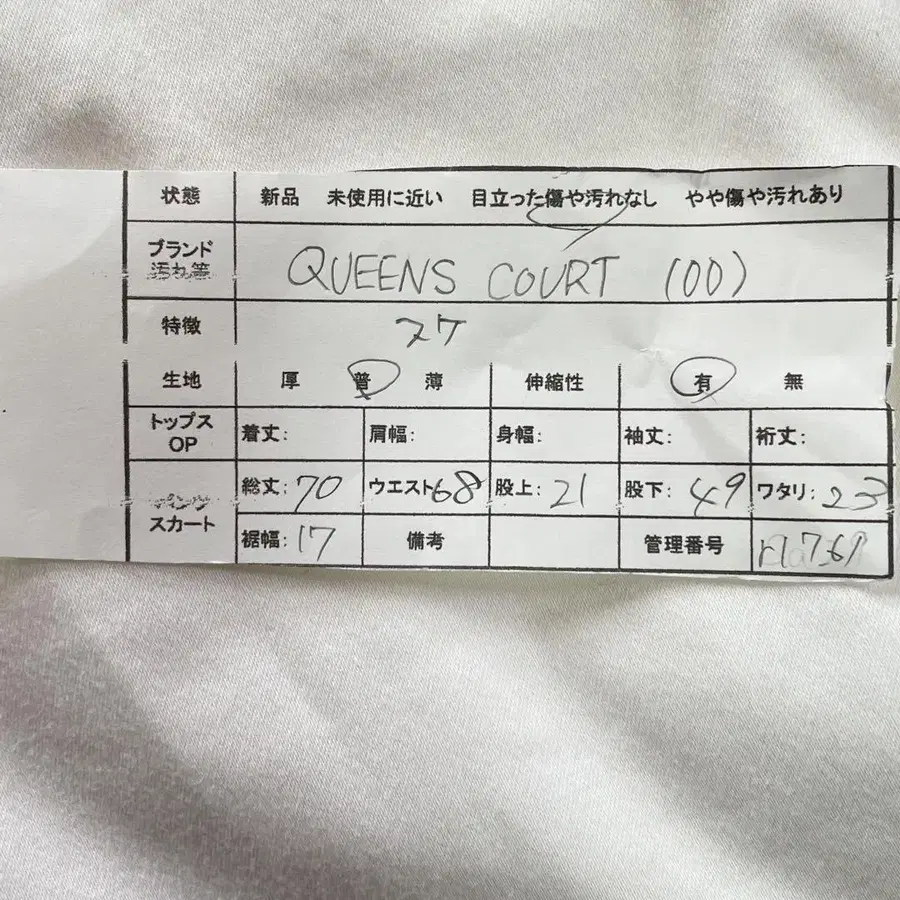 状態 新品 未使用に近い 目立った傷や汚れなし やや傷や汚れあり
ブランド
汚れ等 QUEENS COURT (00)
特徴 スケ
生地 厚 普 薄 伸縮性 有 無
トップス
OP 着丈: 肩幅: 身幅: 袖丈: 裄丈:
パンツ 総丈:70 ウエスト68 股上:21 股下:49 ワタリ:23
スカート 裾幅:17 備考 管理番号